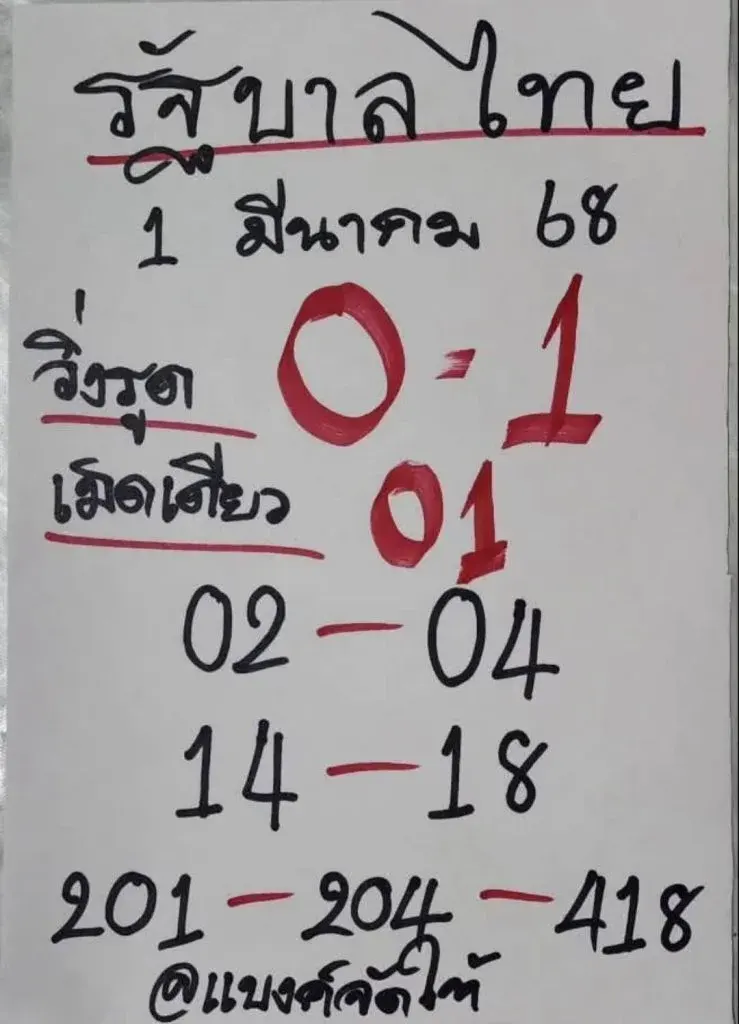 รัฐบาลไทย
1 มีนาคม 68
วิ่งรูด 0 - 1
เม็ดเดียว 01
02 - 04
14 - 18
201 - 204 - 418
@แบงค์จัดให้